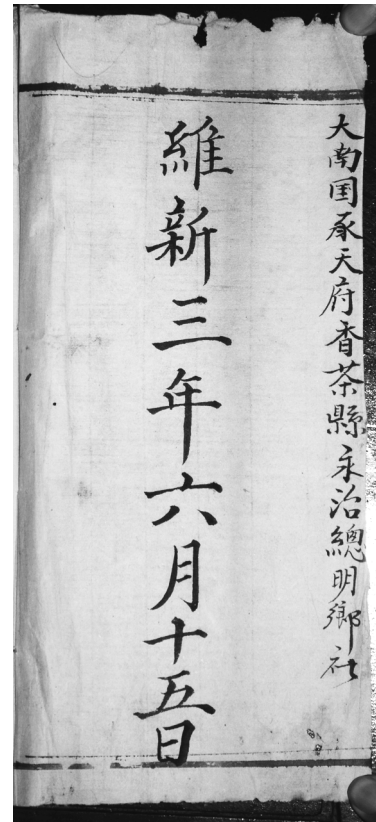 大南国承天府香茶縣永治總明鄉社
維新三年六月十五日